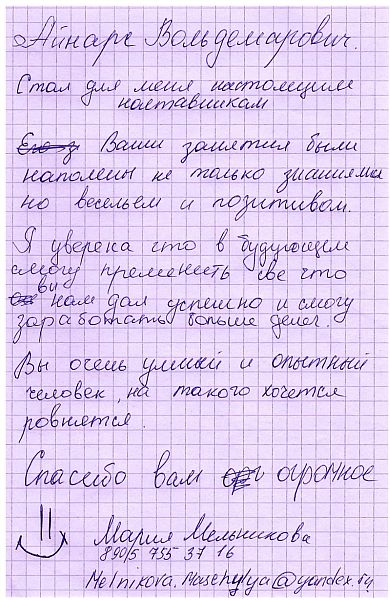 Айнарс Вольдемарович.
Стал для меня настоящим
наставникам
Ваши занятия были
наполнены не только знаниями
но весельем и позитивом.
Я уверена что в будующем
смогу пременить све что
вы
нам дал успешно и смогу
заработать больше денег.
Вы очень умный и опытный
человек, на такого хочется
ровнятся.
Спасебо вам огромное
Мария Мельникова
8 905 755 37 16
Melnikova.Maschylya@yandex.ru